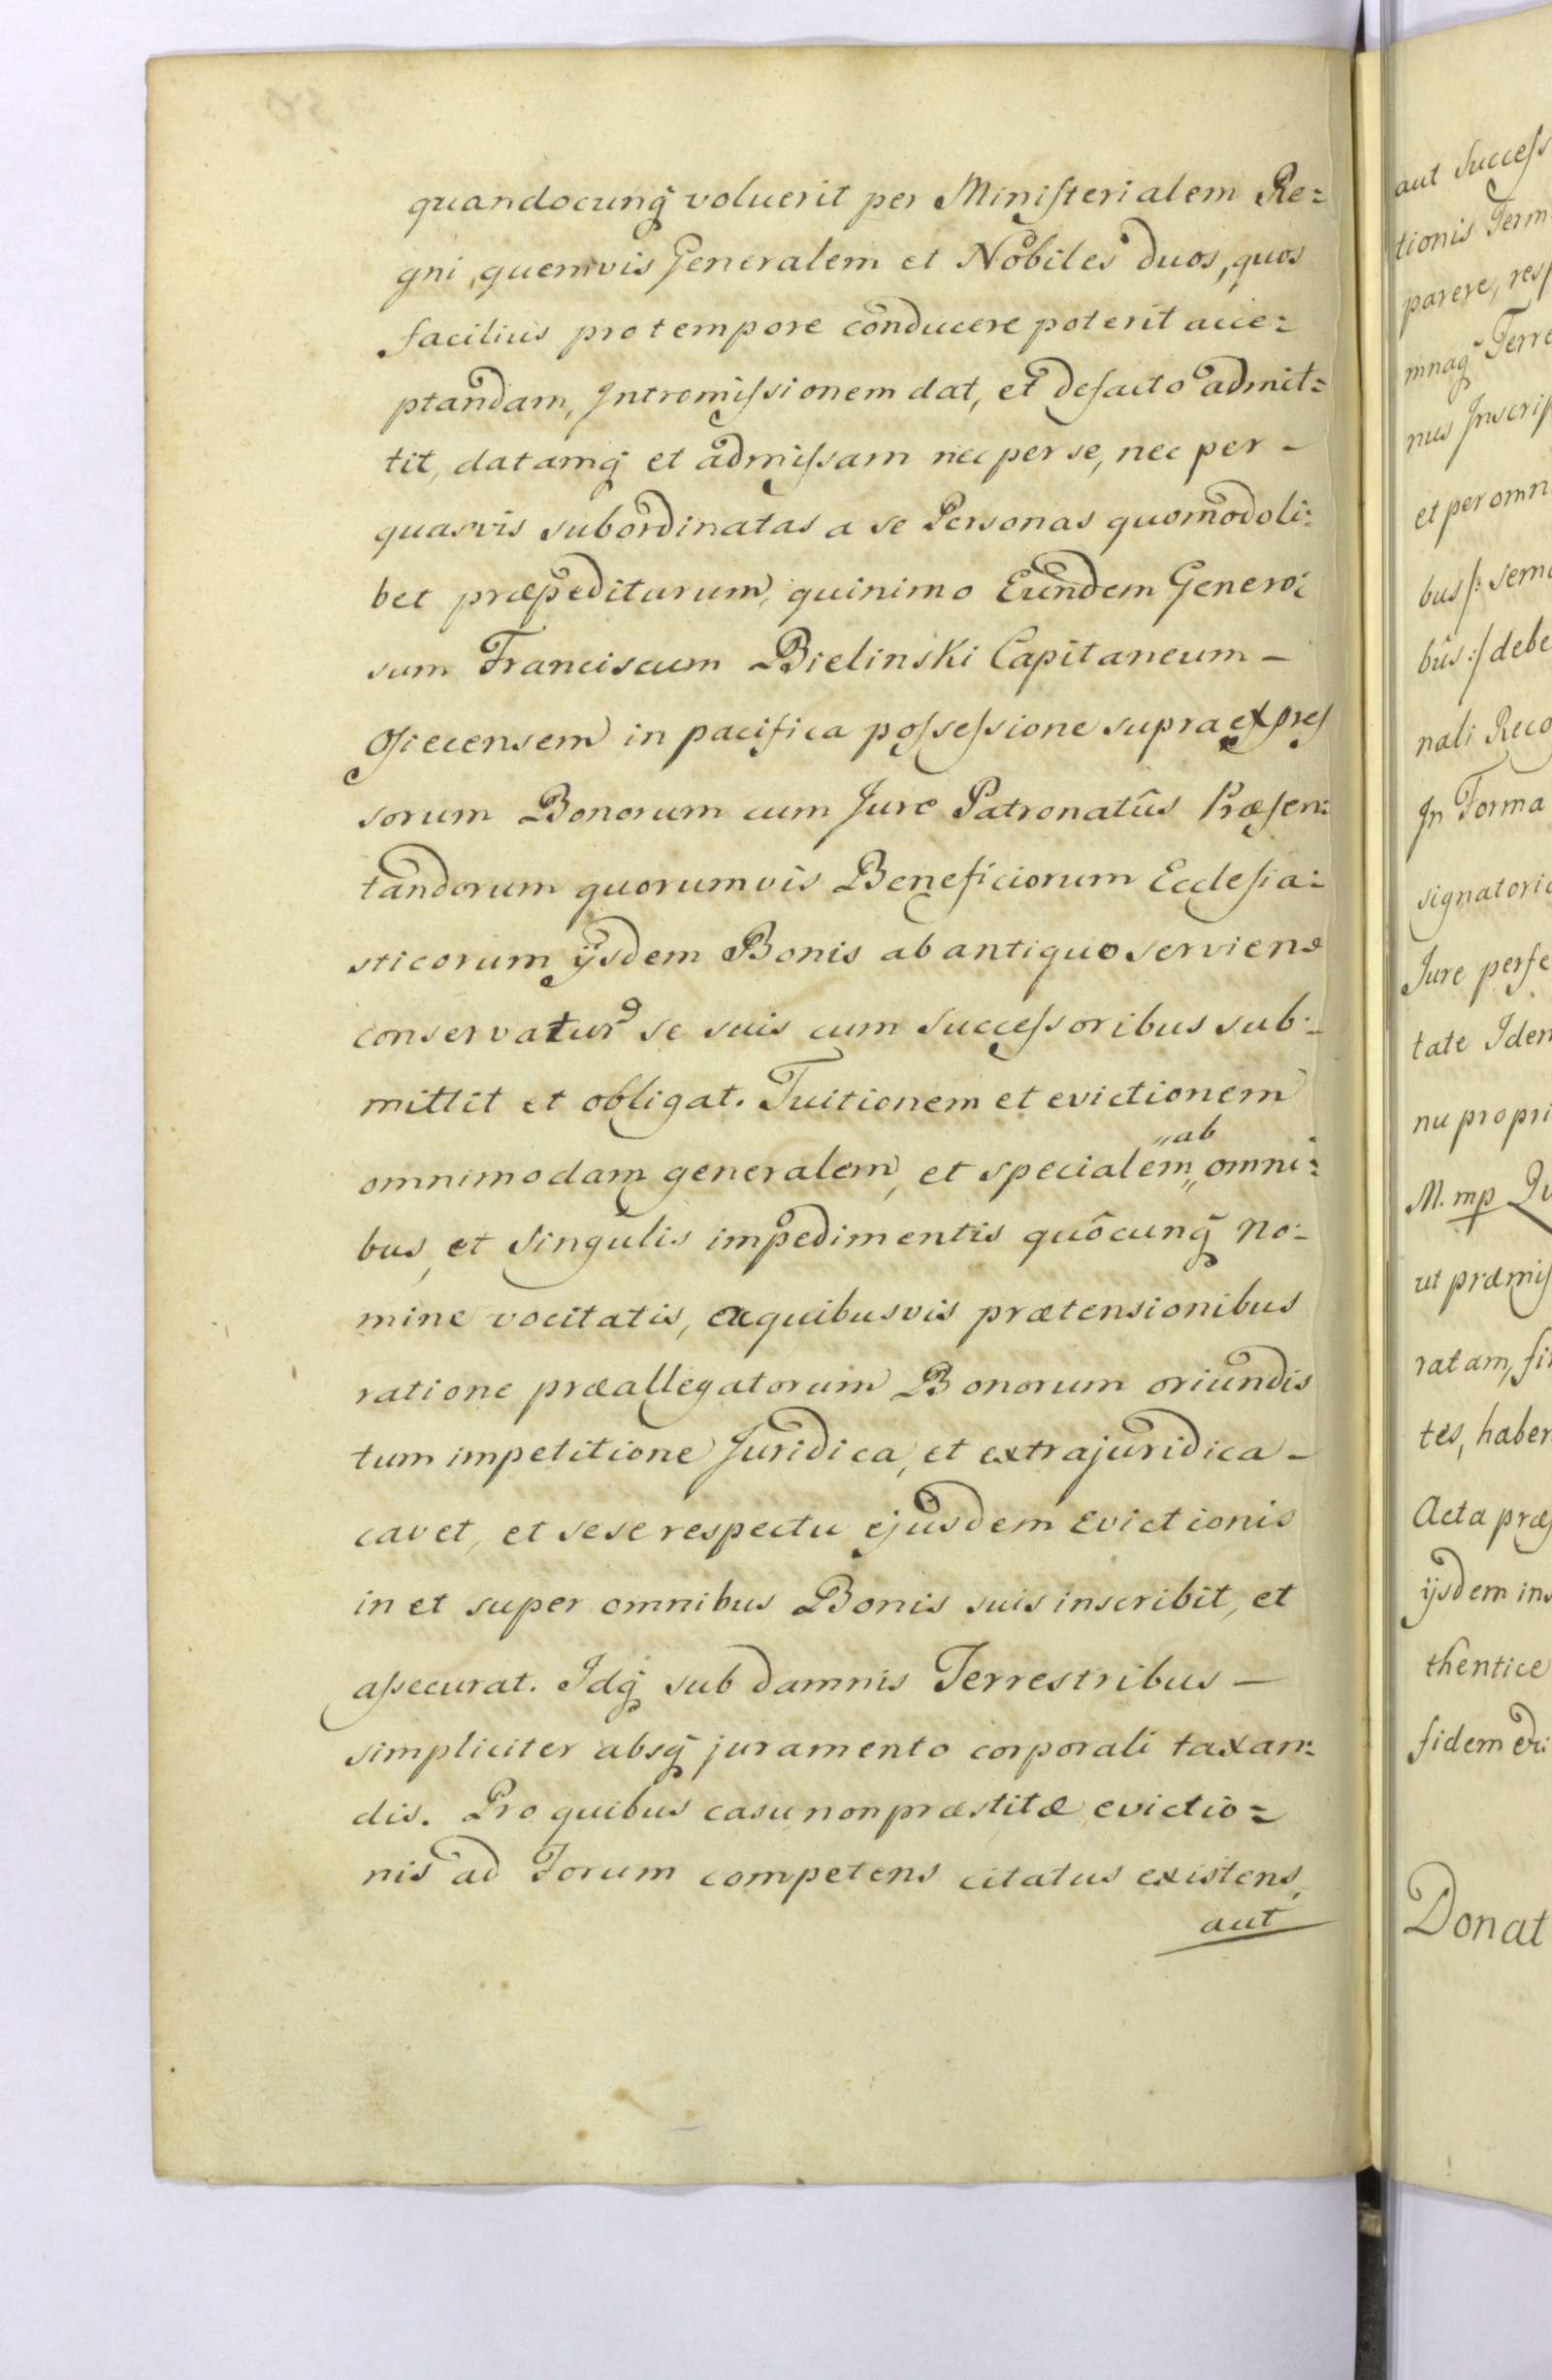 quandocunq̃ voluerit per Miniſterialem Re=
gni, quemvis Generalem et Nobiles duos, quos
facilius pro tempore conducere poterit acce=
ptandam, Intromiſsionem dat, et defacto admit=
tit, datamq̃ et admiſsam nec per se, nec per -
quasvis subordinatas a se Personas quomodoli=
bet præpediturum, quinimo Eundem Genero=
sum Franciscum Bielinski Capitaneum -
Oſiecensem in pacifica poſseſsione supra expreſ
sorum Bonorum cum Jure Patronatûs Præſen=
tandorum quorumvis Beneficiorum Eccleſia=
sticorum ijsdem Bonis ab antiquo servien
conservatur se suis cum succeſsoribus sub=
mittit et obligat. Tuitionem et evictionem
omnimodam generalem, et specialem „ab omni=
bus, et singulis impedimentis quôcunq̃ no=
mine vocitatis, ex quibusvis prætensionibus
ratione præallegatorum Bonorum oriundis
tum impetitione Juridica, et extrajuridica -
cavet, et sese respectu ejusdem Evictionis
in et super omnibus Bonis suis inscribit, et
aſsecurat. Idq̃ sub damnis Terrestribus -
simpliciter absq̃ juramento corporali taxan=
dis. Pro quibus casu non præstitæ evictio=
nis ad Forum competens citatus existens,
aut
aut Succeſs
tionis Term
parere, reſ
mnaq̃ Terre
nus Inscrip
et per omn
bus /: sem
bûs :/ debe
nali Reco
In Forma
signatori
Jure perfe
tate Iden
nu propri
M. mp Qu
ut præmiſ
ratam, fi
tes, haber
Acta præ
ijsdem ins
thentice
fidem
Donat